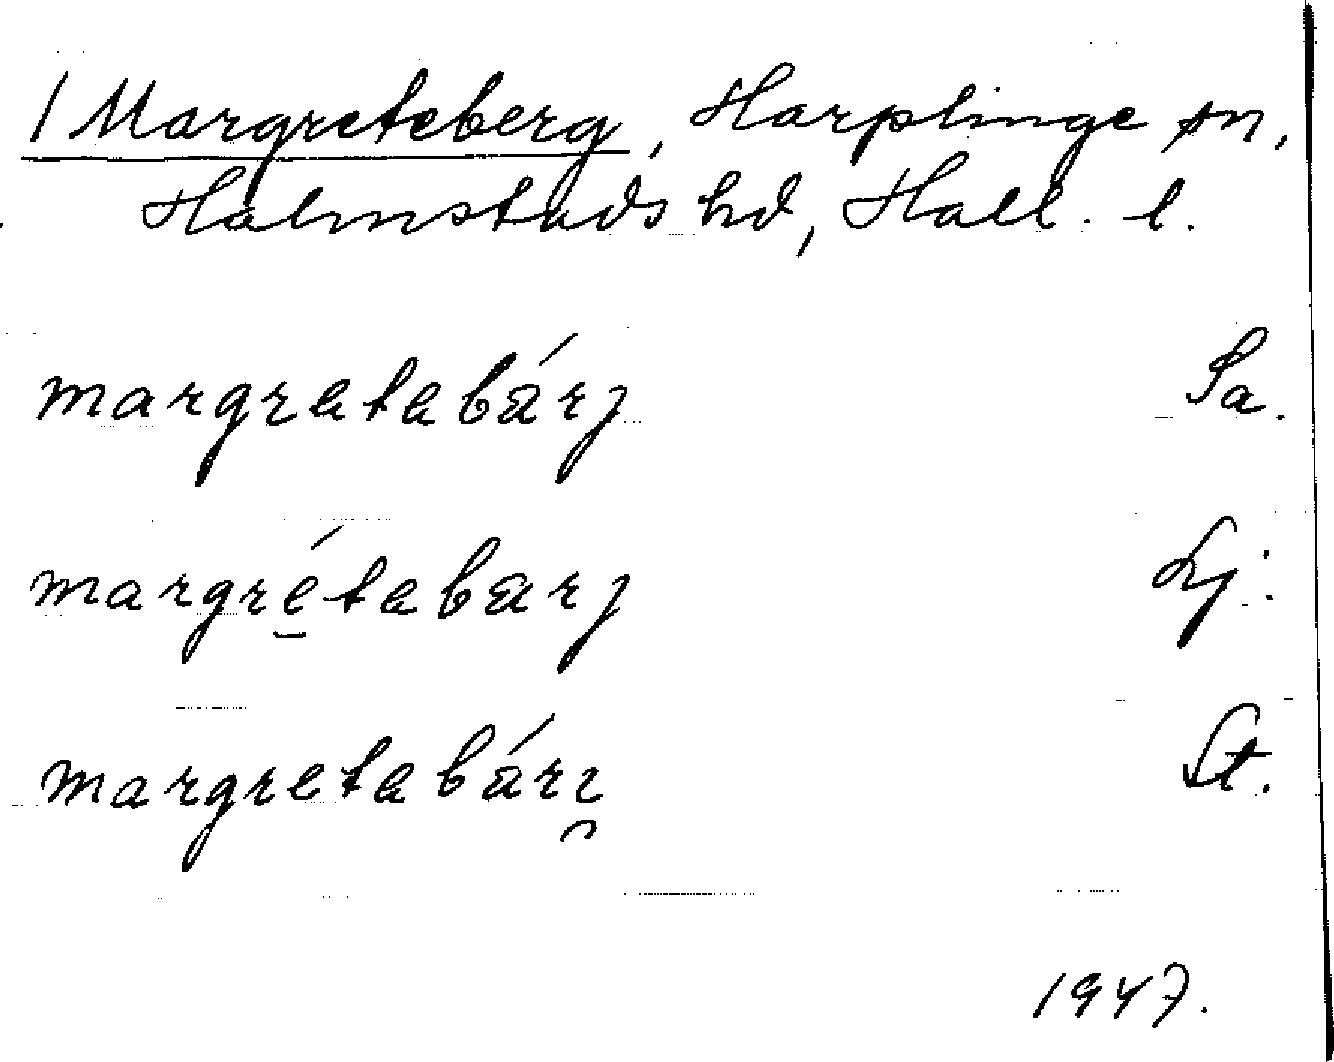 / Margreteberg, Harplinge sn,
Halmstads hd, Hall. l.
margretabárj Sa.
margrétabarj Lj.
margretabárı St.
1947.